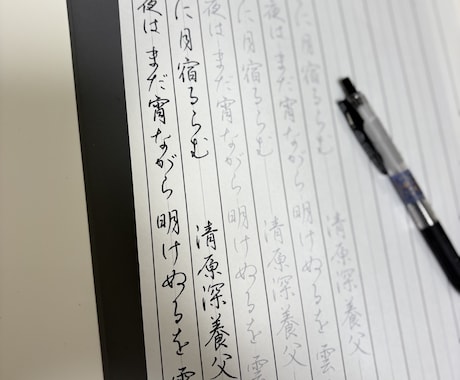 に月宿るらむ 清原深養父
夜は まだ宵ながら 明けぬるを 雲
に月宿るらむ 清原深養父
夜は まだ宵ながら 明けぬるを
に月宿るらむ 清原深養父
夜は まだ宵ながら 明けぬるを 雲